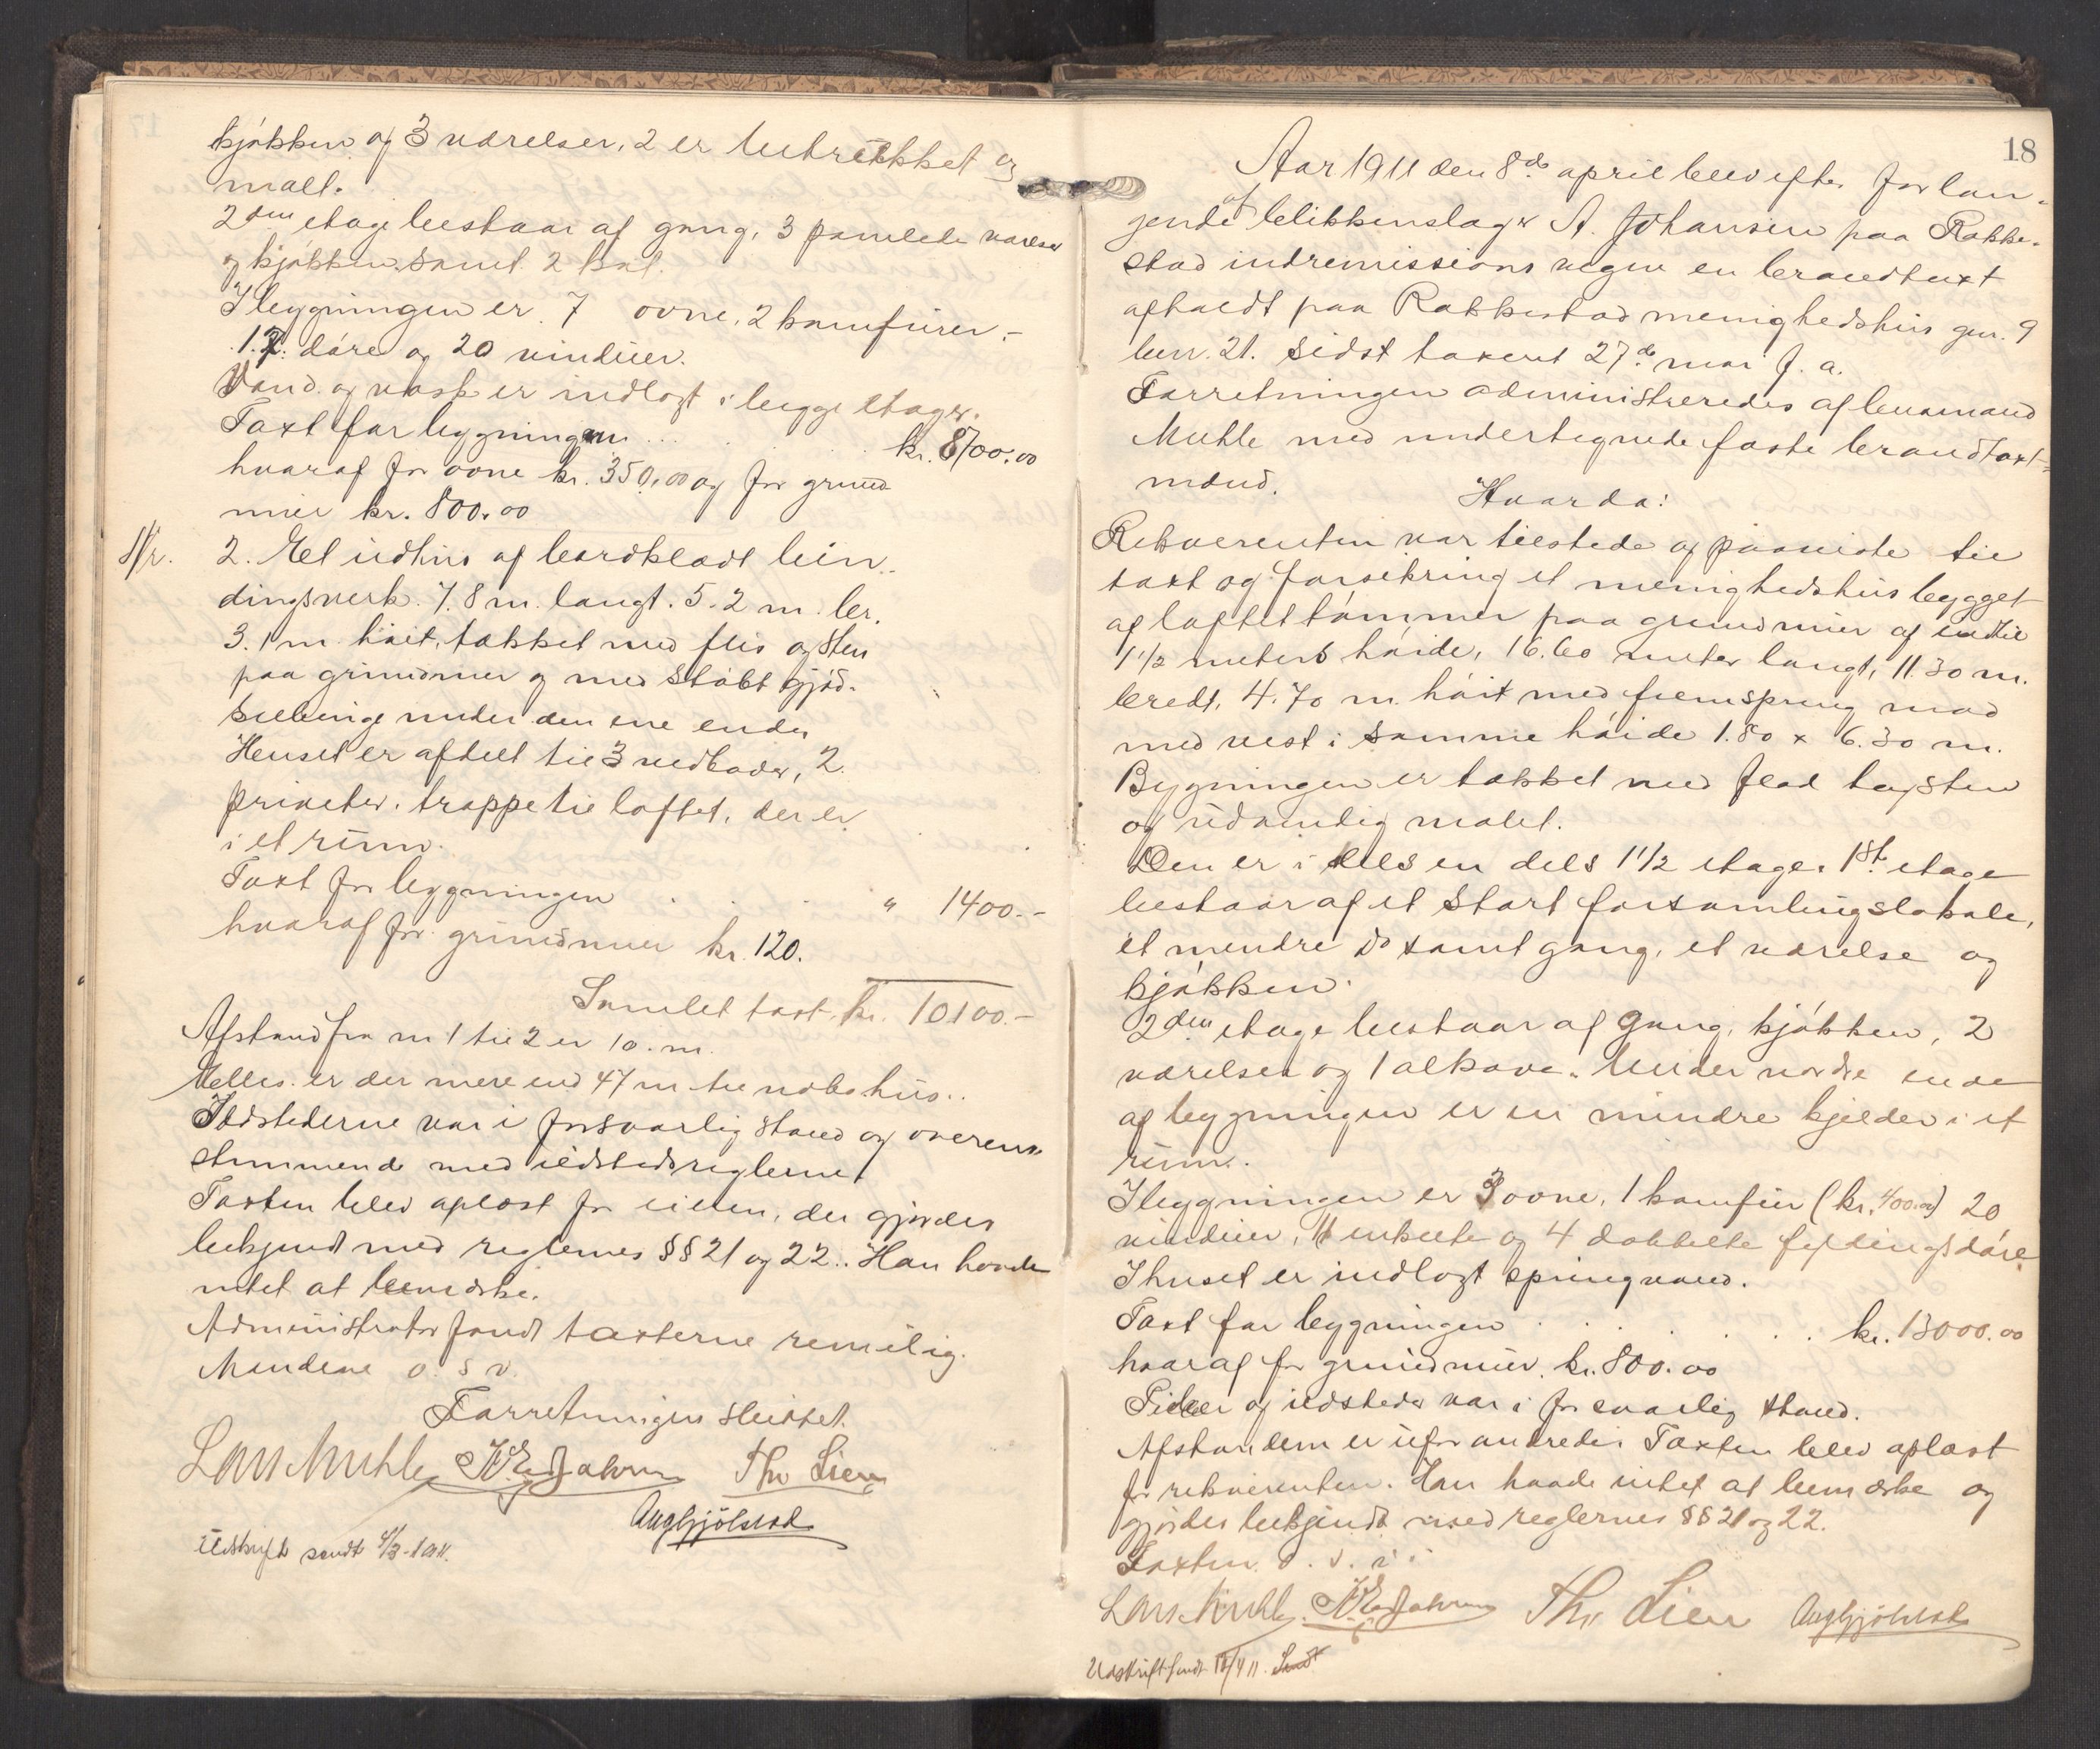 kjøkken og 3 værelser, 2 er betrukket og
malt.
2den etage bestaar af gang, 3 panelede værelser
og kjøkken samt 2 kot.
I bygningen er 7 ovne, 2 komfurer,-
12 døre og 20 vinduer.
Vand og vask er indlagt i begge etager.
Taxt for bygningen ... kr. 8700.00
hvoraf for ovne kr. 350,00 og for grund
mur kr. 800.00
Nr. 2. Et udhus af bordklædt bin-
dingsverk. 7.8 m. langt. 5.2 m. br.
3.1 m. høit, tækket med flis og sten
paa grundmur og med støbt gjød-
selbinge under den ene ende.
Huset er afdelt til 3 vedboder, 2
priveter, trappe til loftet, der er
i et rum.
Taxt for bygningen . . . " 1400.-
hvoraf for grundmur kr. 120.
Samlet taxt kr. 10100.-
Afstand fra nr 1 til 2 er 10. m.
Elles er der mere end 47 m til nabohus..
Ildstederne var i forsvarlig stand og overens-
stemmende med ildstedsreglerne
Taxten blev oplæst for eieren, der gjordes
bekjendt med reglernes §§ 21 og 22.. Han havde
intet at bemærke.
Administrator fandt taxterne rimelig.
Mændene o. s v.
Forretningen sluttet.
Lars Muhle Tho Lien
Udskrift sendt 4/3-1911.
18
Aar 1911 den 8de april blev efter forlan-
gende af blikkenslager A. Johansen paa Rakke-
stad indremissions vegne en brandtaxt
afholdt paa Rakkestad menighedshus gnr. 9
bnr. 21. sidst taxeret 27de mai f. a.
Forretningen administreredes af lensmand
Muhle med undertegnede faste brandtaxt-
mænd.
Hvorda:
Rekverenten var tilstede og paaviste til
taxt og forsikring et menighedshus bygget
af laftet tømmer paa grundmur af indtil
1 1/2 meters høide, 16.60 meter langt, 11.30 m.
bredt, 4.70 m. høit med fremspring mod
med vest i samme høide 1.80 x 6.30 m.
Bygningen er tækket med flad tagsten
og udvendig malet.
Den er i dels en dels 1 1/2 etage. 1ste etage
bestaar af et stort forsamlingslokale,
et mendre do samt gang, et værelse og
kjøkken.
2den etage bestaar af gang, kjøkken, 2
værelser og 1 alkove. Under nordre ende
af bygningen er en mindre kjelder i et
rum.
I bygningen er 3 ovne, 1 komfur (kr. 400.00) 20
vinduer, 11 enkelte og 4 dobbelte fyldingsdøre.
I huset er indlagt springvand.
Taxt for bygningen . . . . . kr. 13000.00
hvoraf for grundmur kr. 800.00
Piber og ildsteder var i forsvarlig stand.
Afstandene er uforandrede. Taxten blev oplæst
for rekvirenten. Han havde intet at bemærke og
gjordes bekjendt med reglernes §§ 21 og 22.
Taxten
Lars Muhle Tho Lien
Udskrift sendt 18/4 11. Sendt